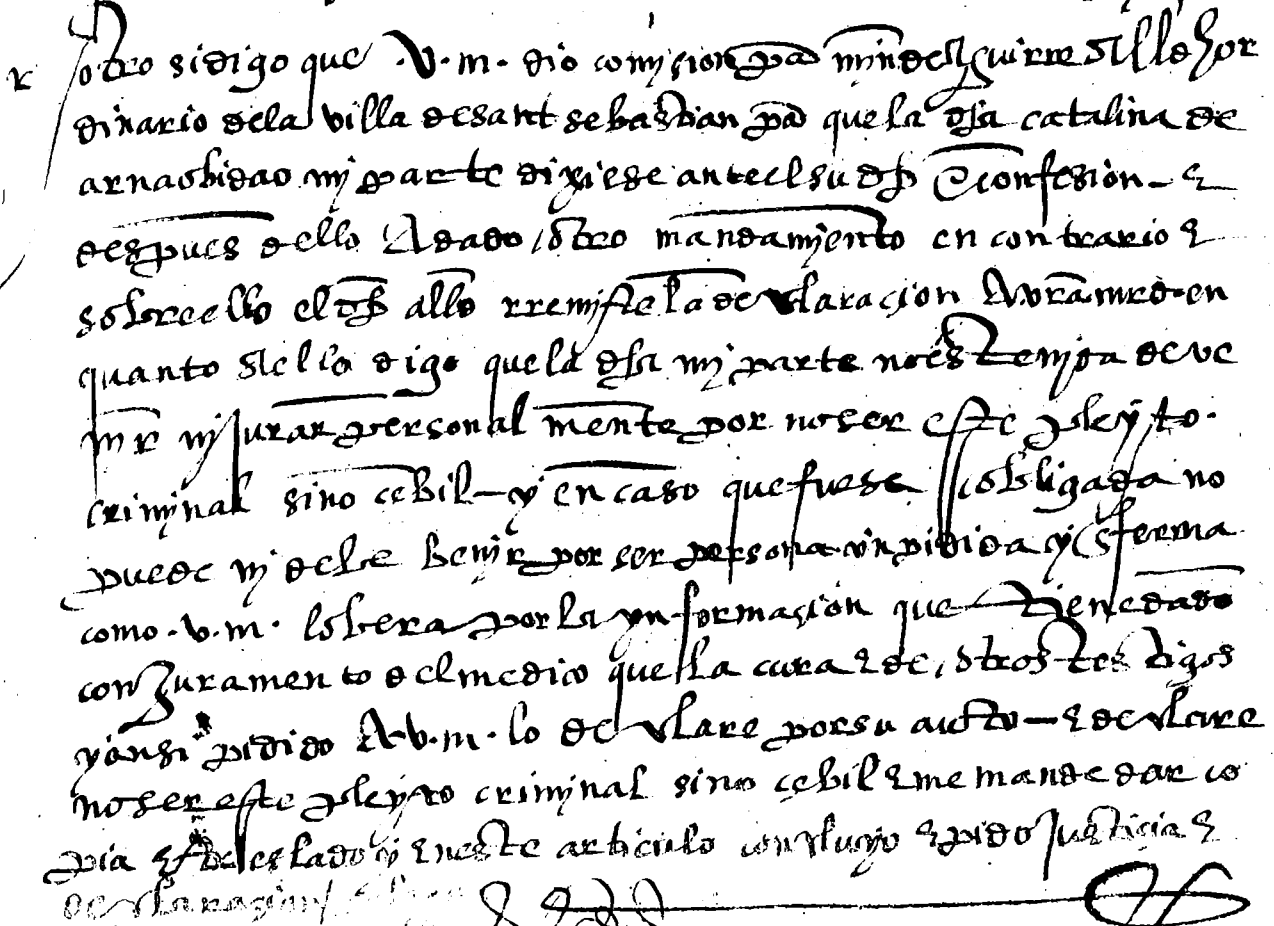 otro si digo que .v.m. dio comision pa min de aguirre alllde hor
dinario dela villa de sant sebastian pa que la dha catalina de
arnasbidao mi parte dixiese ante el su dho confesion - e
despues dello a dado otro mandamiento en contrario e
sobre ello el dho allde rremiste la declaracion a vra mrd. en
quanto a ello digo que la dha mi parte no es tenida de ve
nir ni jurar personal mente por no ser este pleyto.
criminal sino cebil - y en caso que fuese obligada no
puede ni debe benir por ser persona ynpidida y enferma
como .v.m. lo bera por la ynformaçion que tiene dado
con juramento del medico que la cura e de otros testigos
y ansi pido a v.m. lo declare por su aucto - e declare
no ser este pleyto criminal sino çebil e me mande dar co
pia e treslado y en este articulo concluyo e pido justicia e
declaraçion